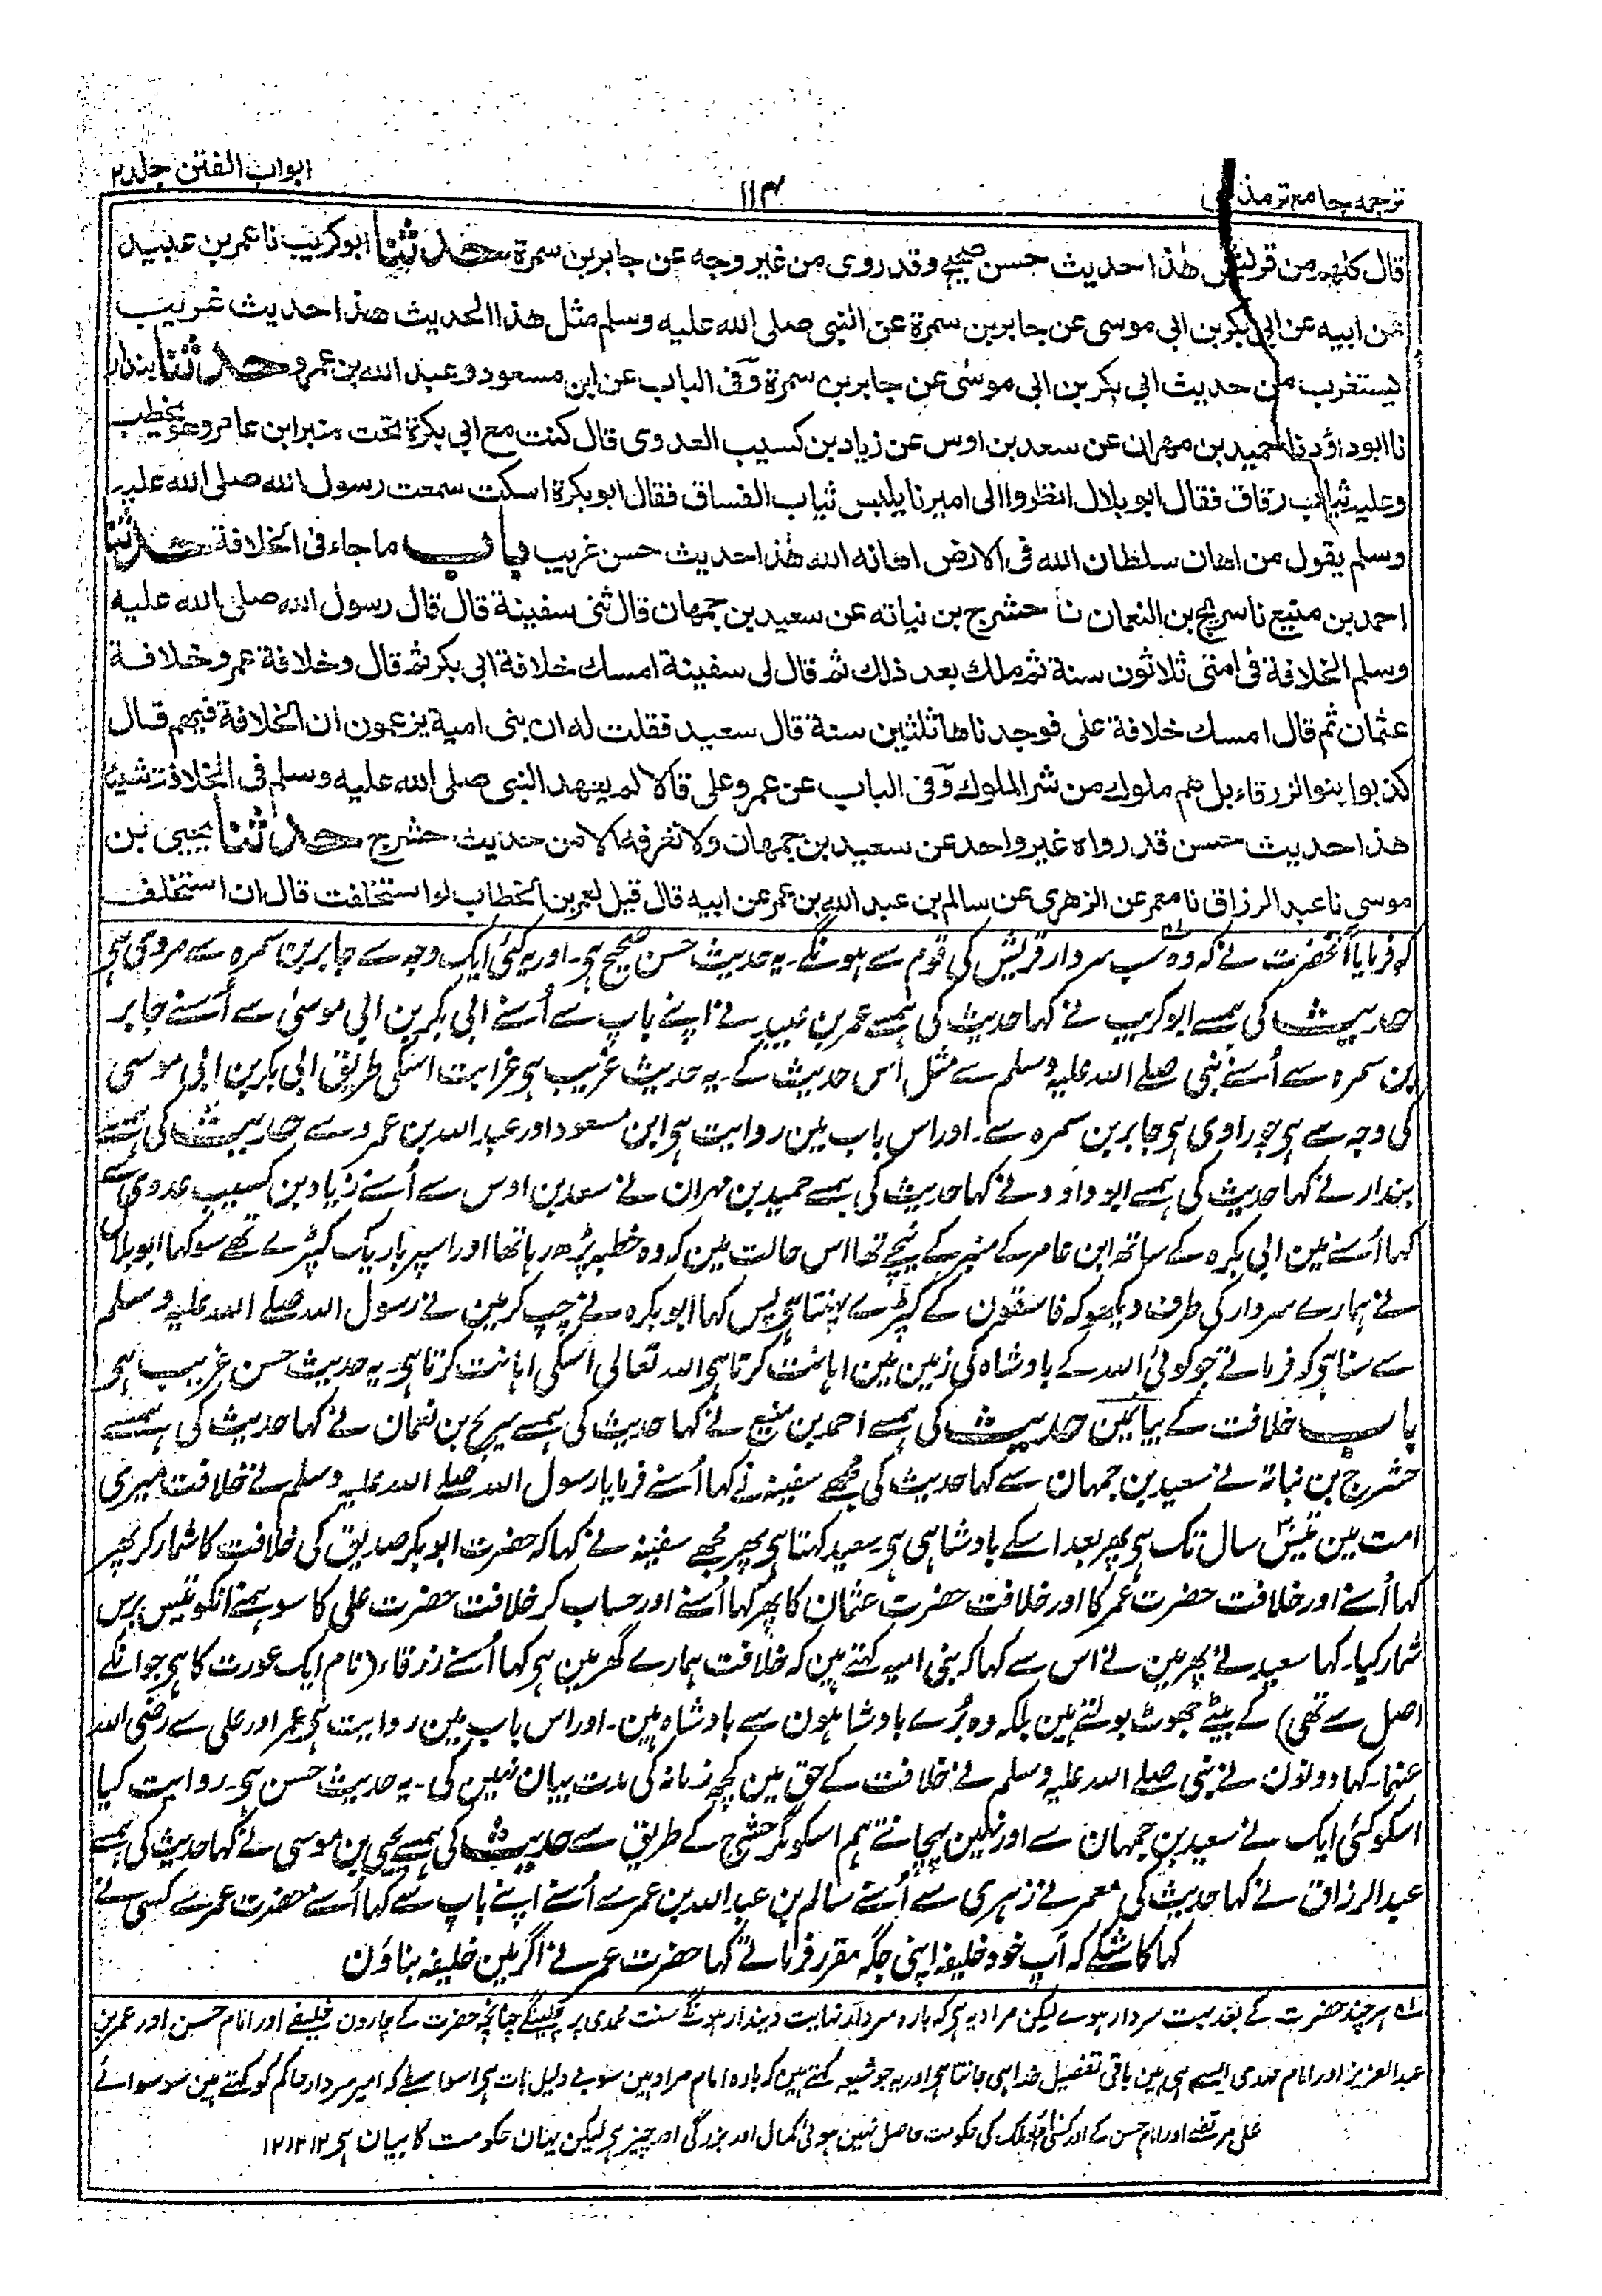 ترجمہ جامع ترمذی
۱۱۴
ابواب الفتن جلد۲
قال کلهم من قریش هٰذا حدیث حسن صحیح وقد روی من غیر وجه عن جابر بن سمرة حدثنا ابوکریب نا عمر بن عبید
عن ابیه عن ابی بکر بن ابی موسی عن جابر بن سمرة عن النبی صلی الله علیه وسلم مثل هذا الحدیث هذا حدیث غریب
یستغرب من حدیث ابی بکر بن ابی موسٰی عن جابر بن سمرة وفی الباب عن ابن مسعود وعبد الله بن عمرو حدثنا بندار
نا ابوداؤد نا حمید بن مهران عن سعد بن اوس عن زیاد بن کسیب العدوی قال کنت مع ابی بکرة تحت منبر ابن عامر وهو یخطب
وعلیه ثیاب رقاق فقال ابو بلال انظروا الی امیرنا یلبس ثیاب الفساق فقال ابو بکرة اسکت سمعت رسول الله صلی الله علیه
وسلم یقول من اهان سلطان الله فی الارض اهانه الله هٰذا حدیث حسن غریب باب ما جاء فی الخلافة حدثنا
احمد بن منیع نا سریج بن النعمان نا حشرج بن نباته عن سعید بن جمهان قال ثنی سفینة قال قال رسول الله صلی الله علیه
وسلم الخلافة فی امتی ثلاثون سنة ثم ملك بعد ذلك ثم قال لی سفینة امسك خلافة ابی بکر ثم قال وخلافة عمر وخلافة
عثمان ثم قال امسك خلافة علی فوجدناها ثلثین سنة قال سعید فقلت له ان بنی امیة یزعمون ان الخلافة فیهم قال
کذبوا بنو الزرقاء بل هم ملوك من شر الملوك وفی الباب عن عمر وعلی قالا لم یعهد النبی صلی الله علیه وسلم فی الخلافة شیئا
هذا حدیث حسن قد رواه غیر واحد عن سعید بن جمهان ولا نعرفه الا من حدیث حشرج حدثنا یحیی بن
موسی نا عبد الرزاق نا معمر عن الزهری عن سالم بن عبد الله بن عمر عن ابیه قال قیل لعمر بن الخطاب لو استخلفت قال ان استخلف
کہ فرمایا آنحضرت نے کہ وہ سب سردار قریش کی قوم سے ہونگے۔ یہ حدیث حسن صحیح ہی۔ اور یہ کئی ایک وجہ سے جابر بن سمرہ سے مروی ہی
حدیث کی ہمسے ابوکریب نے کہا حدیث کی ہمسے عمر بن عبید نے اپنے باپ سے اُسنے ابی بکر بن ابی موسیٰ سے اُسنے جابر
بن سمرہ سے اُسنے نبی صلے اللہ علیہ وسلم سے مثل اس حدیث کے۔ یہ حدیث غریب ہی غرابت اسکی طریق ابی بکر بن ابی موسی
کی وجہ سے ہی جو راوی ہی جابر بن سمرہ سے۔ اور اس باب مین روایت ہی ابن مسعود اور عبد اللہ بن عمرو سے حدیث کی ہمسے
بندار نے کہا حدیث کی ہمسے ابو داؤد نے کہا حدیث کی ہمسے حمید بن مہران نے سعد بن اوس سے اُسنے زیاد بن کسیب عدوی سے
کہا اُسنے مین ابی بکرہ کے ساتھ ابن عامر کے منبر کے نیچے تھا اس حالت مین کہ وہ خطبہ پڑھ رہا تھا اور اسپر باریک کپڑے تھے سو کہا ابوبلال
نے ہمارے سردار کی طرف دیکھو کہ فاسقون کے کپڑے پہنتا ہی پس کہا ابوبکرہ نے چپ کر مین نے رسول اللہ صلے اللہ علیہ وسلم
سے سنا ہی کہ فرماتے جو کوئی اللہ کے بادشاہ کی زمین مین اہانت کرتا ہی اللہ تعالی اسکی اہانت کرتا ہی۔ یہ حدیث حسن غریب ہی
باب خلافت کے بیانمین حدیث کی ہمسے احمد بن منیع نے کہا حدیث کی ہمسے سریج بن نعمان نے کہا حدیث کی ہمسے
حشرج بن نباتہ نے سعید بن جمہان سے کہا حدیث کی مجھسے سفینہ نے کہا اُسنے فرمایا رسول اللہ صلے اللہ علیہ وسلم نے خلافت میری
امت مین تیس۳۰ سال تک ہی پھر بعد اسکے بادشاہی ہی سعید کہتا ہی پھر مجھے سفینہ نے کہا کہ حضرت ابوبکر صدیق کی خلافت کا شمار کر پھر
کہا اُسنے اور خلافت حضرت عمر کا اور خلافت حضرت عثمان کا پھر کہا اُسنے اور حساب کر خلافت حضرت علی کا سو ہمنے انکو تیس برس
شمار کیا۔ کہا سعید نے پھر مین نے اس سے کہا کہ بنی امیہ کہتے ہین کہ خلافت ہمارے گھر مین ہی کہا اُسنے زرقاء (نام ایک عورت کا ہی جو انکے
اصل سے تھی) کے بیٹے جھوٹ بولتے ہین بلکہ وہ بُرے بادشاہون سے بادشاہ ہین۔ اور اس باب مین روایت ہی عمر اور علی سے رضی اللہ
عنہما۔ کہا دونون نے نبی صلے اللہ علیہ وسلم نے خلافت کے حق مین کچھ زمانہ کی مدت بیان نہین کی۔ یہ حدیث حسن ہی۔ روایت کیا
اسکو کئی ایک نے سعید بن جمہان سے اور نہین پہچانتے ہم اسکو مگر حشرج کے طریق سے حدیث کی ہمسے یحیی بن موسی نے کہا حدیث کی ہمسے
عبد الرزاق نے کہا حدیث کی معمر نے زہری سے اُسنے سالم بن عبد اللہ بن عمر سے اُسنے اپنے باپ سے کہا اُسنے حضرت عمر سے کسی نے
کہا کاشکے کہ آپ خود خلیفہ اپنی جگہ مقرر فرماتے کہا حضرت عمر نے اگر مین خلیفہ بناؤن
ہر چند حضرت کے بعد بہت سردار ہوے لیکن مراد یہ ہی کہ بارہ سردار نہایت دیندار ہونگے سنت محمدی پر چلینگے چنانچہ حضرت کے چارون خلیفے اور امام حسن اور عمر بن
عبد العزیز اور امام مہدی ایسے ہی ہین باقی تفصیل خدا ہی جانتا ہی اور یہ جو شیعہ کہتے ہین کہ بارہ امام مراد ہین سو بے دلیل بات ہی اسواسطے کہ امیر سردار حاکم کو کہتے ہین سو سوائے
علی مرتضے اور امام حسن کے اور کسی کو ملک کی حکومت حاصل نہین ہوئی کمال اور بزرگی اور چیز ہی لیکن یہان حکومت کا بیان ہی ۱۲ ۱۲ ۱۲